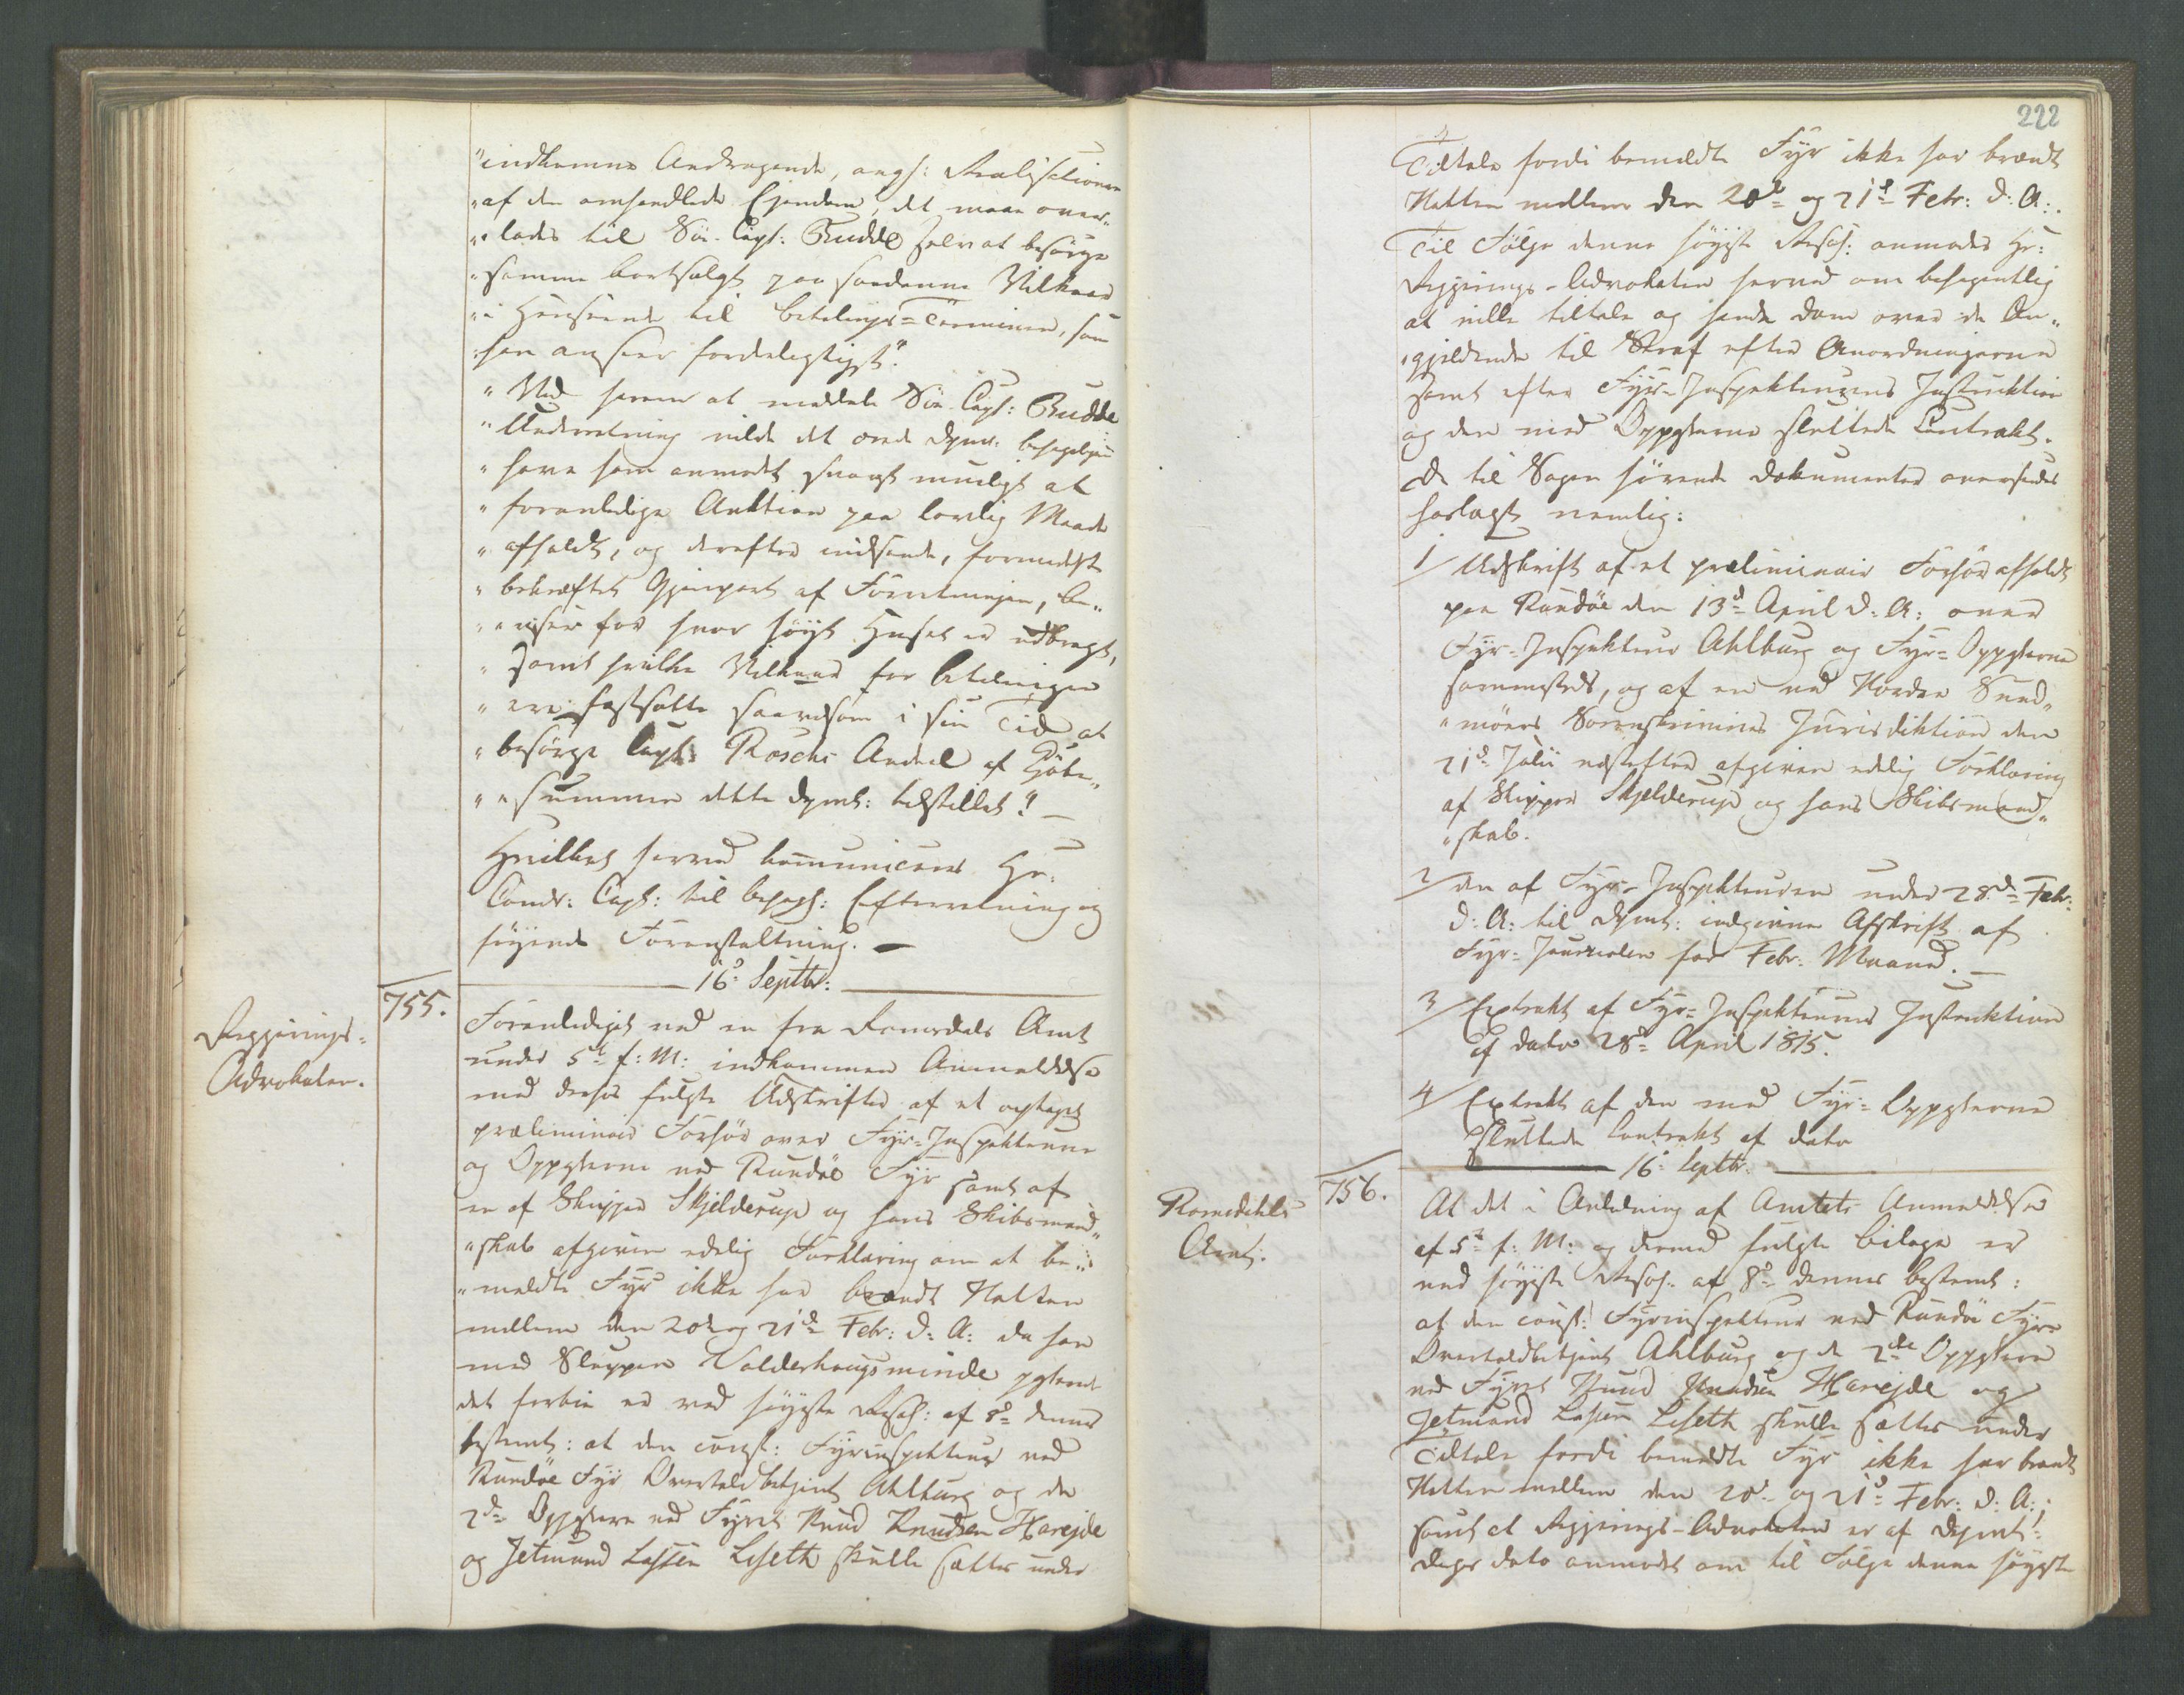 "indkomne Andragende, angh: Realisationen
"af den omhandlede Ejendom, det maa over„
„lades til Söe-Capt: Budde selv at besörge
"samme bortsolgt paa saadanne Vilkaar
"i Henseende til Betalings=Terminer, som
"han anseer fordelagtigst."
"Ved herom at meddele Söe-Capt: Budde
"Underretning vilde det ærede Dpmt: behageligen
"have ham anmodet snarest mueligt at
"foranledige Auktion paa lovlig Maade
"afholdt, og derefter indsende, formedelst
"bekræftet Gjenpart af Forretningen, be„
"„viser for hvor höyt Huset er udbragt,
"samt hvilke Vilkaar for Betalingen
"ere fastsatte saavelsom i sin Tid at
"besörge Capt: Roschs Andeel af Kjöbe„
"„summen dette Dpmt: tilstillet". —
Hvilket herved kommuniceres Hr:
Comdr: Capt: til behagl: Efterretning og
föyende Foranstaltning. —
16d Septbr:
Regjerings=
Advokaten.
755.
Foranlediget ved en fra Romsdals Amt
under 5te f: M: indkommen Anmeldelse
med dertil fulgte Udskrifter af et optaget
præliminair Forhör over Fyr=Inspekteuren
og Oppasserne ved Rundöe Fyr samt af
en af Skipper Skjelderup og hans Skibsmand„
„skab afgiven edelig Forklaring om at be„
„meldte Fyr ikke har brændt Natten
mellem den 20de og 21de Febr: d: A: da han
med Sluppen Valderhougsminde passerede
det forbi er ved höyeste Resol: af 8d dennes
bestemt: at den const: Fyrinspekteur ved
Rundöe Fyr Overtoldbetjent Ahlburg og de
2de Oppassere ved Fyret Knud Knudsen Harejde
og Jetmund Lassen Leseth skulle sættes under
222
Tiltale fordi bemeldte Fyr ikke har brændt
Natten mellem den 20de og 21de Febr: d: A:.
Til Fölge denne höyeste Resol: anmodes Hr:
Regjerings-Advokaten herved om behagentlig
at ville tiltale og hende Dom over de An„
„gjeldende til Straf efter Anordningerne
samt efter Fyr-Inspekteurens Instruktion
og den med Oppasserne sluttede Contrakt.
De til Sagen hörende Dokumenter oversendes
hoslagt nemlig:
1/ Udskrift af et præliminair Forhör afholdt
paa Rundöe den 13d April d: A: over
Fyr-Inspekteur Ahlburg og Fyr-Oppasserne
sammesteds, og af en ved Nordre Sund„
„möers Sorenskriveries Jurisdiktion den
21d Julii næstefter afgiven edelig Forklaring
af Skipper Skjelderup og hans Skibsmand„
„skab.
2/ Den af Fyr-Inspekteuren under 28de Febr:
d: A: til Dpmt: indgivne Afskrift af
Fyr-Journalen for Febr: Maaned. —
3/ Extrakt af Fyr-Inspekteurens Instruktion
af Dato 28d April 1815.
4/ Extrakt af den med Fyr-Oppasserne
sluttede Contrakt af Dato
16d Septbr:
Romsdahls
Amt.
756.
At det i Anledning af Amtets Anmeldelse
af 5te f: M: og dermed fulgte Bilage er
ved höyeste Resol: af 8d dennes bestemt:
at den const: Fyrinspekteur ved Rundöe Fyr
Overtoldbetjent Ahlburg og de 2de Oppassere
ved Fyret Knud Knudsen Harejde og
Jetmund Lassen Leseth skulle sættes under
Tiltale fordi bemeldte Fyr ikke har brændt
Natten mellem den 20d og 21d Febr: d: A:
samt at Regjerings-Advokaten er af Dpmt:
Dags Dato anmodet om til Fölge denne höyeste